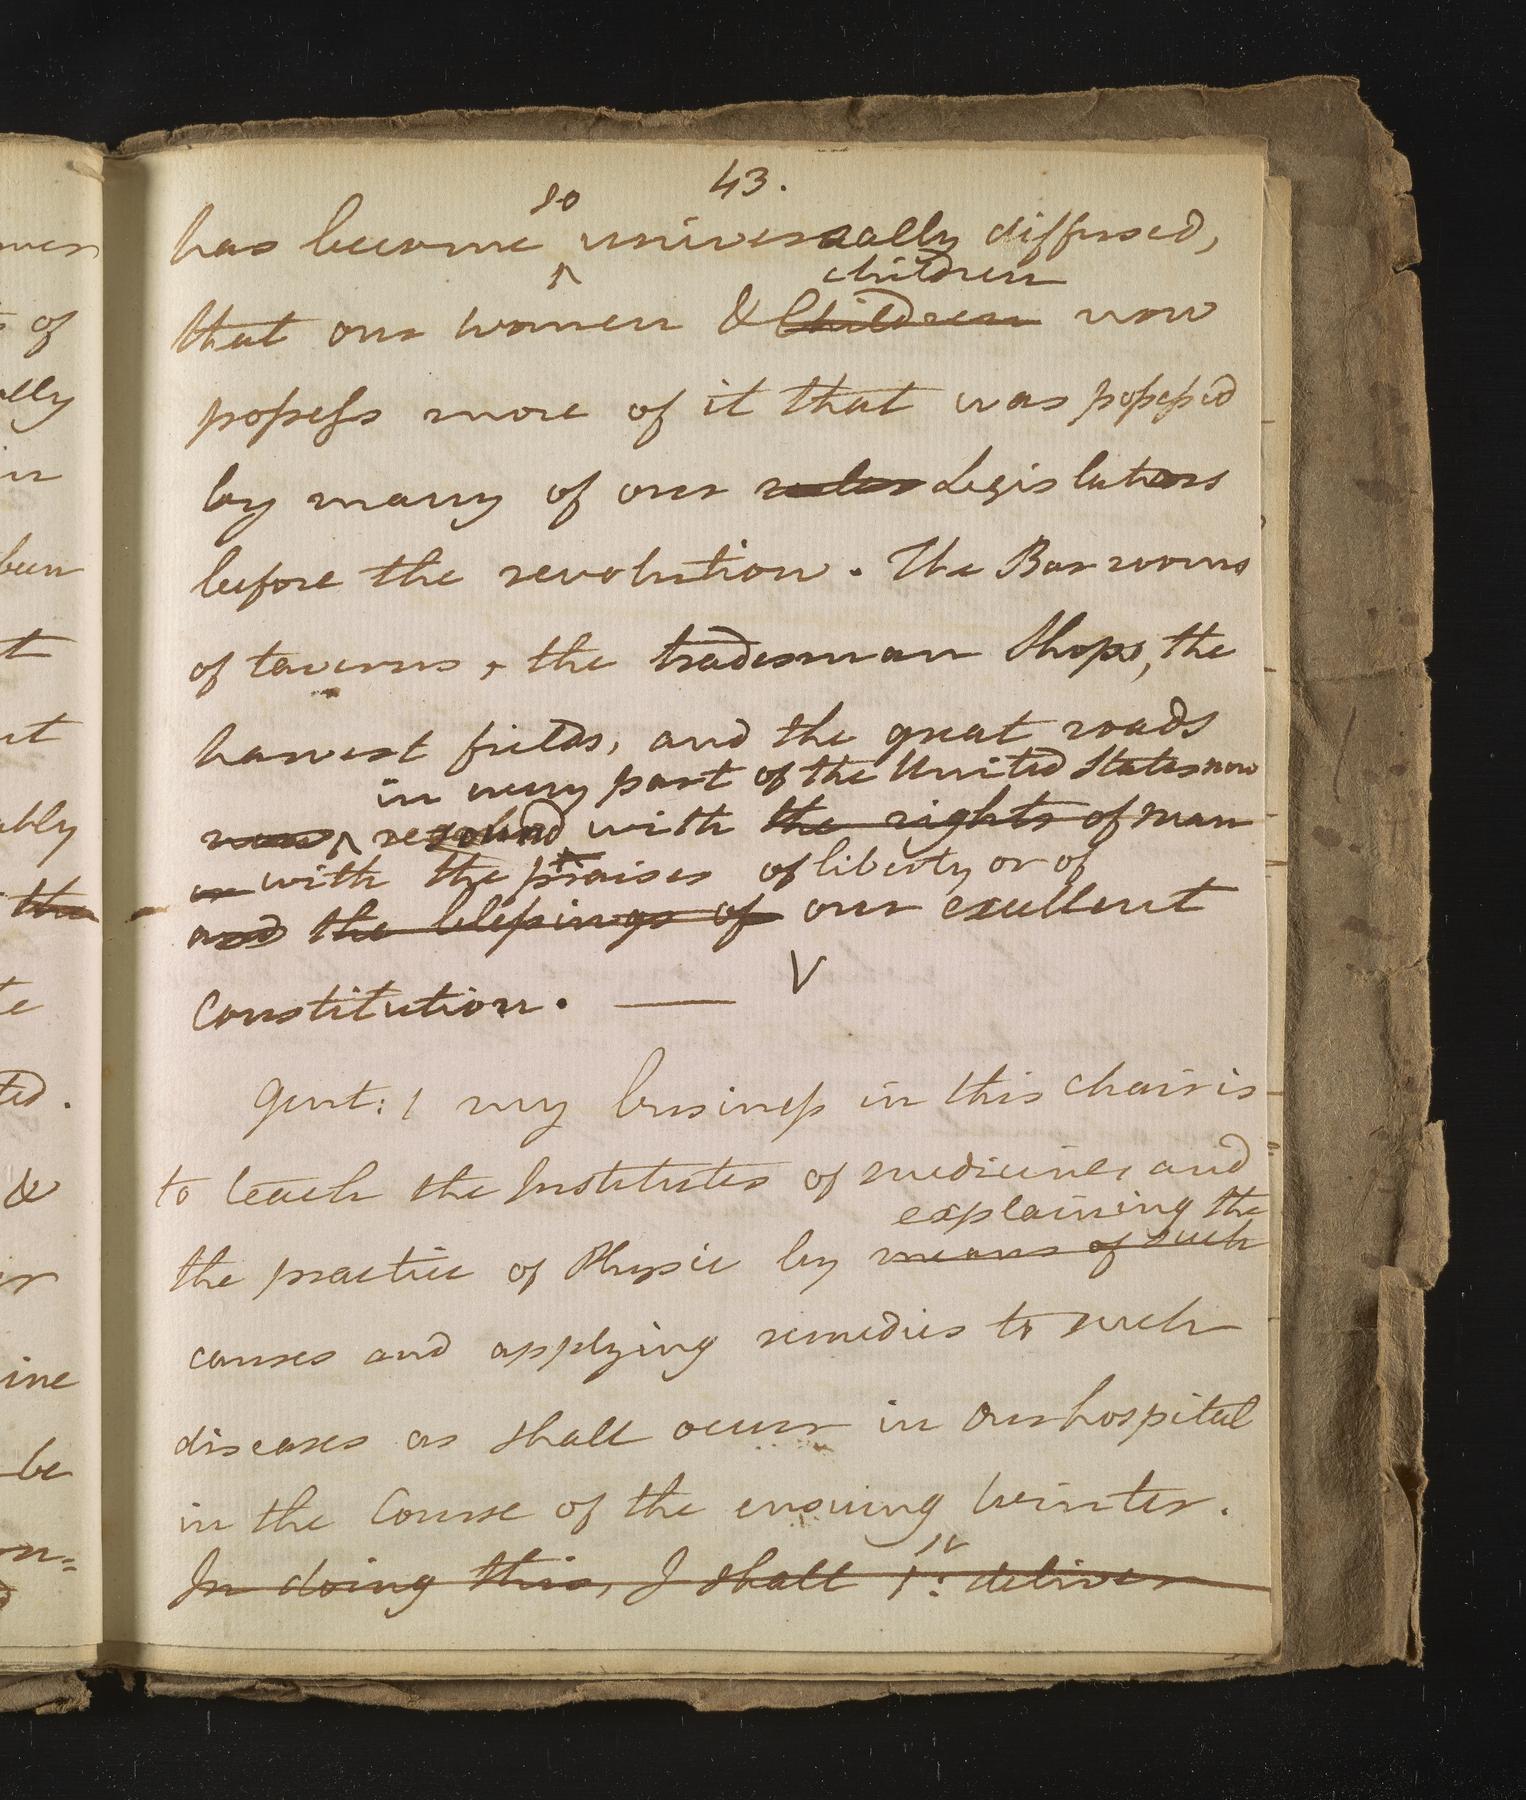 43.
so
has become ^ universally diffused,
children
that our women & Children now
possess more of it that was possessed
by many of our rulers Legislators
before the revolution. The Bar rooms
of taverns, the tradesman shops, the
harvest fields, and the great roads
in every part of the United States now
^ resound with the rights of man
or with the praises of liberty or of
and the blessings of our excellent
Constitution. — V
Gent: ! my business in this chair is
to teach the Institutes of medicine, and
explaining the
the practice of Physic by means of such
causes and applying remedies to such
diseases as shall occur in our hospital
in the Course of the ensuing winter.
In doing this, I shall 1st: deliver